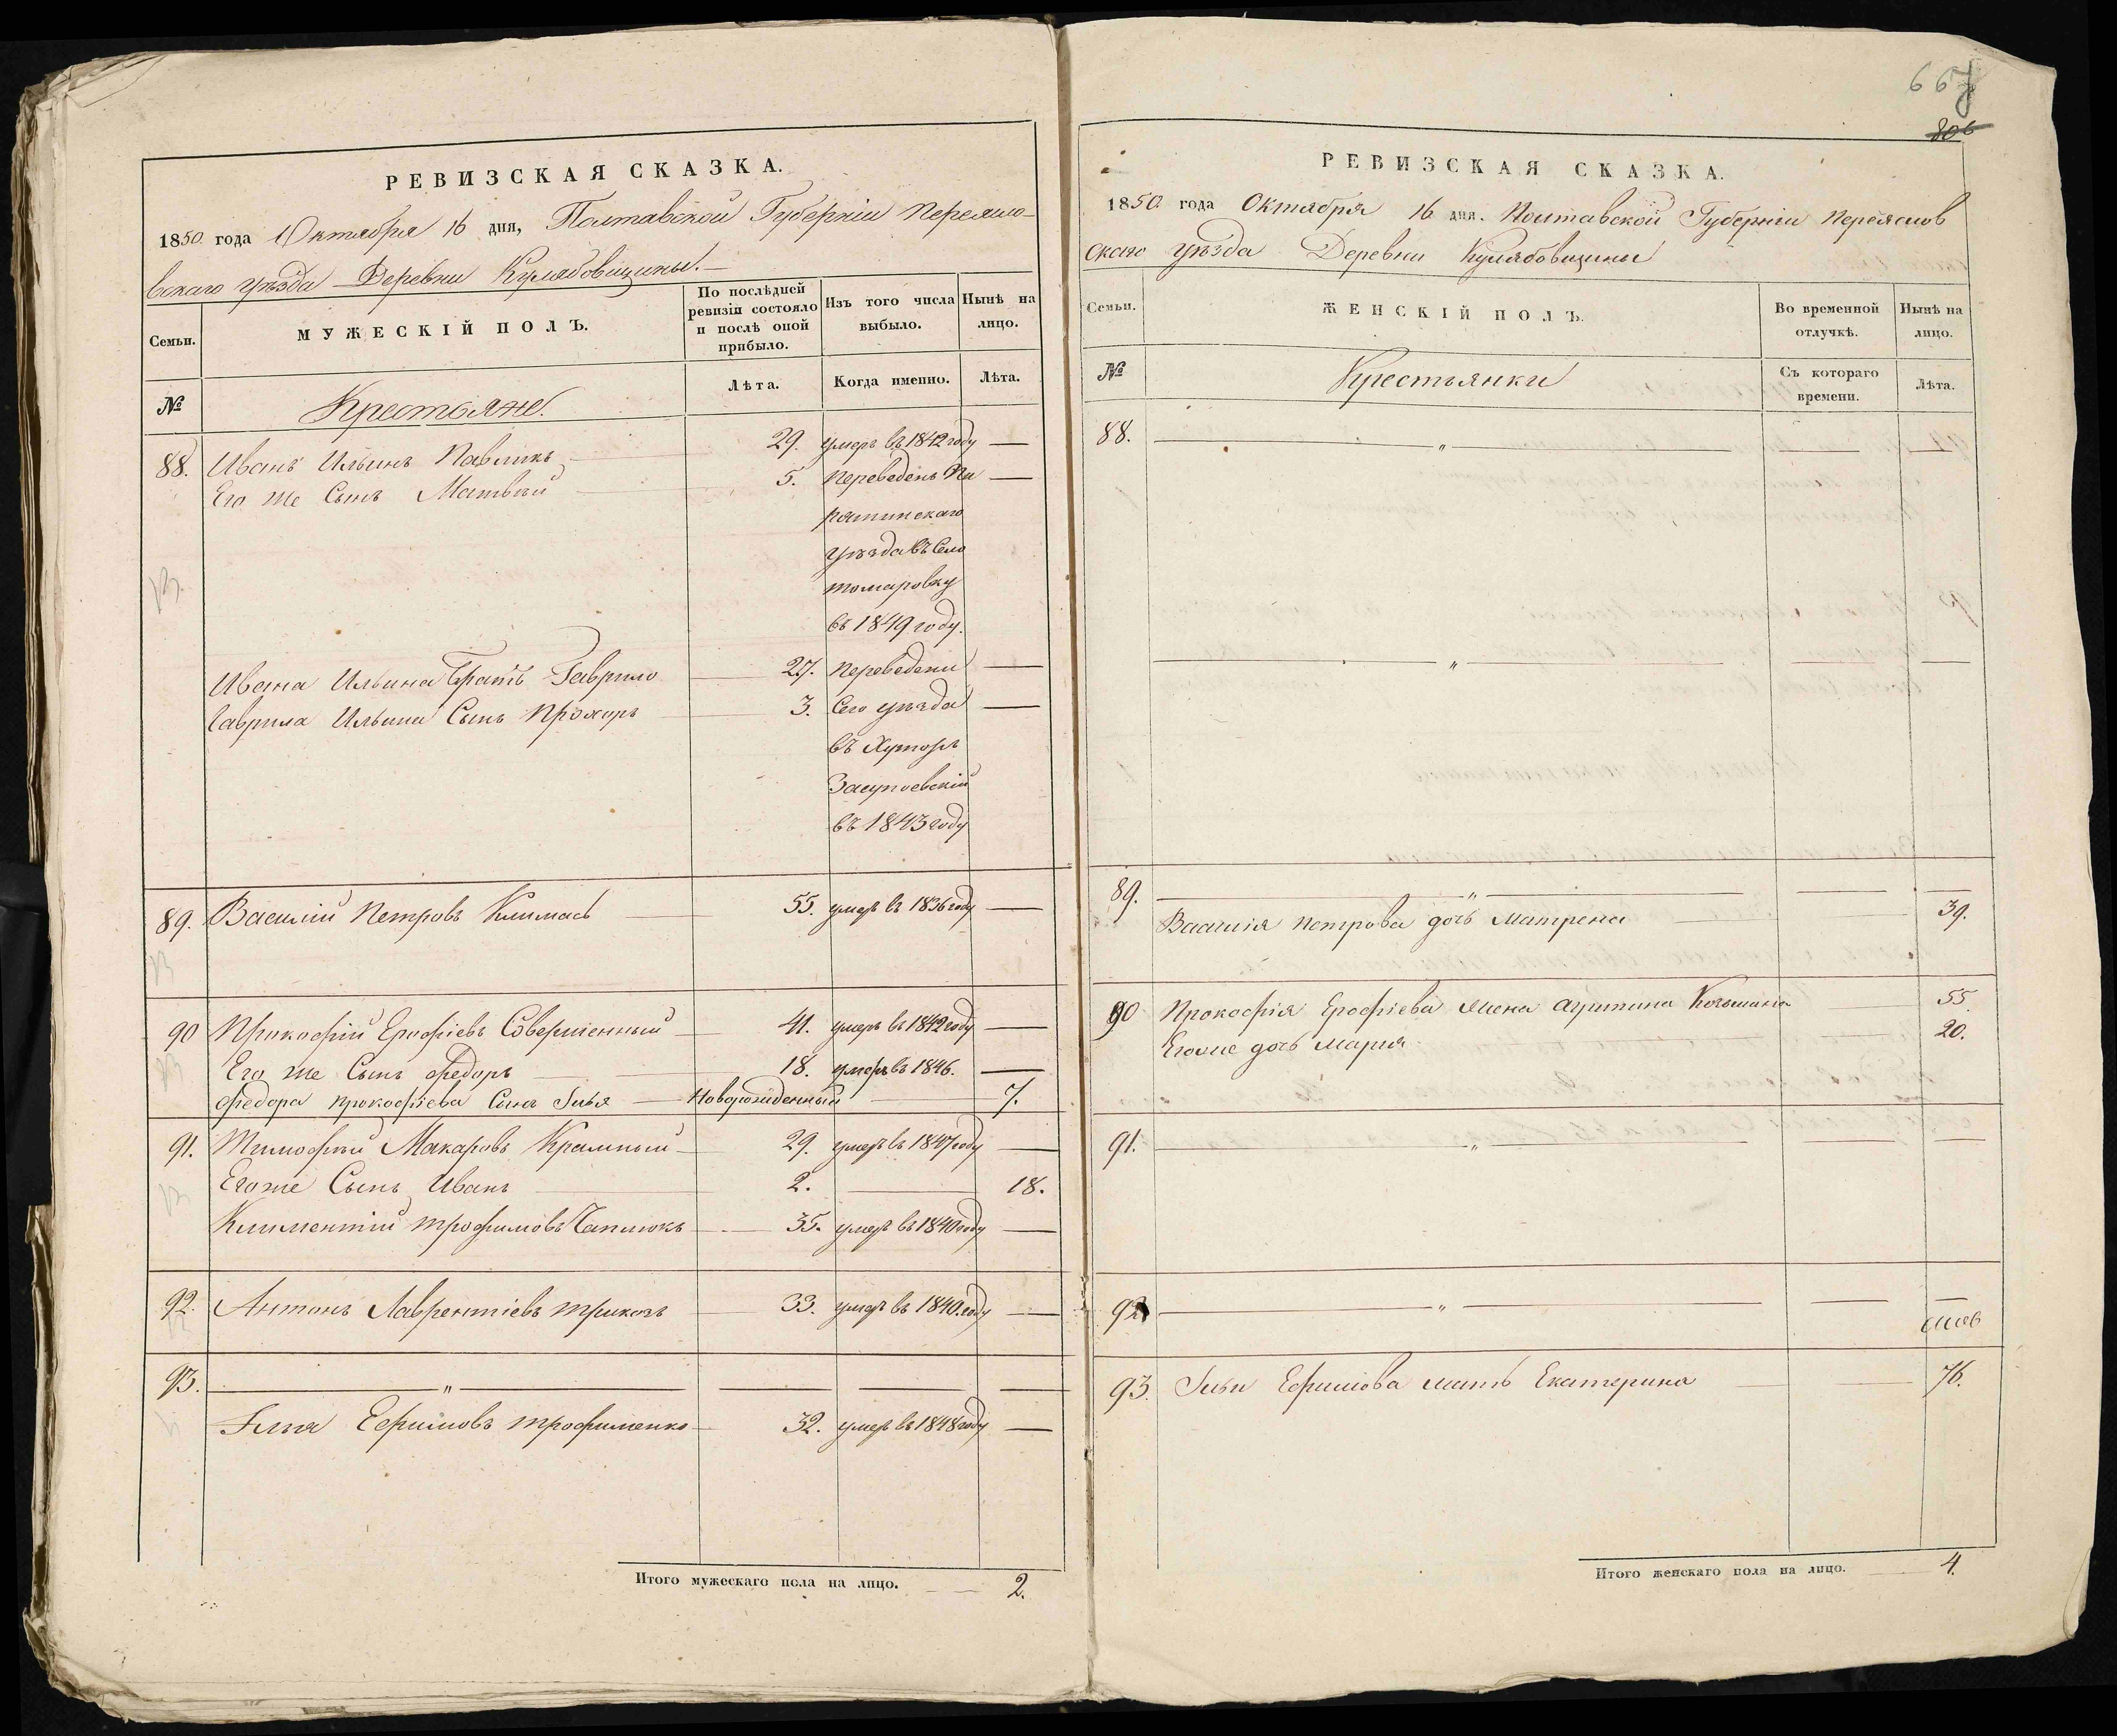 РЕВИЗСКАЯ СКАЗКА.
1850 года Октября 16 дня, Полтавской Губерніи Переясло-
вскаго уѣзда Деревни Кулябовщины.
Семьи.
МУЖЕСКІЙ ПОЛЪ.
По послѣдней ревизіи состояло и послѣ оной прибыло.
Изъ того числа выбыло.
Нынѣ на лицо.
№
Крестьяне.
Лѣта.
Когда именно.
Лѣта.
88. Иванъ Ильинъ Павликъ 29. умеръ въ 1842 году —
Его же Сынъ Матвѣй 5. переведенъ Пи —
рятинскаго
уѣзда въ Село
томаровку
въ 1849 году.
Ивана Ильина братъ Гаврило 27. переведены —
Гаврила Ильина Сынъ Прохоръ 3. Сего уѣзда —
въ Хуторъ
Засупоевскій
въ 1843 году
89. Василій Петровъ Климась 55. умеръ въ 1836 году —
90 Прокофій Ерофіевъ Совершенный 41. умеръ въ 1842 году —
Его же Сынъ Федоръ 18. умеръ въ 1846. —
Федора Прокофіева Сынъ Илья Новорожденный 7.
91. Тимофѣй Макаровъ Крамный 29. умеръ въ 1847 году —
Его же Сынъ Иванъ 2. — 18.
Климентій Трофимовъ Чаплюкъ 35. умеръ въ 1840 году —
92. Антонъ Лаврентіевъ Трикозъ 33. умеръ въ 1840. году —
93. — " —
Илья Ефимовъ Трофименко 32. умеръ въ 1848 году —
Итого мужескаго пола на лицо. 2.
667
806
РЕВИЗСКАЯ СКАЗКА.
1850 года Октября 16 дня. Полтавской Губерніи Переяслов
скаго уѣзда Деревни Кулябовщины
Семьи.
ЖЕНСКІЙ ПОЛЪ.
Во временной отлучкѣ.
Нынѣ на лицо.
№
Крестьянки
Съ котораго времени.
Лѣта.
88. — " —
— " —
89. — " —
Василія Петрова дочь Матрена 39.
90 Прокофія Ерофіева жена Агрипина Козьмина 55
Его же дочь Марія 20.
91. — " —
92 — " —
93. Ильи Ефимова мать Екатерина 76.
Итого женскаго пола на лицо. 4.